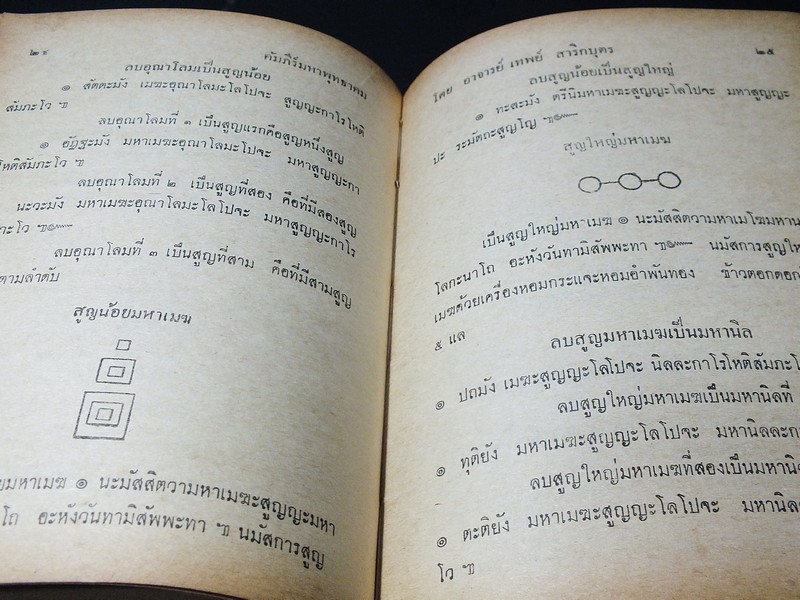 ๒๔ คัมภีร์มหาพุทธาคม
ลบอุณาโลมเป็นสูญน้อย
๑ สัตตะมัง เมฆะอุณาโลมะโลโปจะ สูญญะกาโรโหติ
สัมภะโว ฯ
ลบอุณาโลมที่ ๑ เป็นสูญแรกคือสูญหนึ่งสูญ
๑ อัฏฐะมัง มหาเมฆะอุณาโลมะโลโปจะ มหาสูญญะกา
โหติสัมภะโว ฯ
ลบอุณาโลมที่ ๒ เป็นสูญที่สอง คือที่มีสองสูญ
นะวะมัง มหาเมฆะอุณาโลมะโลโปจะ มหาสูญญะกาโร
ภะโว ฯ๛
ลบอุณาโลมที่ ๓ เป็นสูญที่สาม คือที่มีสามสูญ
ตามลำดับ
สูญน้อยมหาเมฆ
ยมหาเมฆ ๑ นะมัสสิตวามหาเมฆะสูญญะมหา
โถ อะหังวันทามิสัพพะทา ฯ นมัสการสูญ
โดย อาจารย์ เทพย์ สาริกบุตร ๒๕
ลบสูญน้อยเป็นสูญใหญ่
๑ ทะสะมัง ตรีนิมหาเมฆะสูญญะโลโปจะ มหาสูญญะ
ปะ ระมัตถะสูญโญ ฯ๛
สูญใหญ่มหาเมฆ
เป็นสูญใหญ่มหาเมฆ ๑ นะมัสสิตวามหาเมโฆมหาน
โลกะนาโถ อะหังวันทามิสัพพะทา ฯ๛ นมัสการสูญให
เมฆด้วยเครื่องหอมกระแจะหอมอำพันทอง ข้าวตอกดอก
๕ แล
ลบสูญมหาเมฆเป็นมหานิล
๑ ปถมัง เมฆะสูญญะโลโปจะ นิลละกาโรโหติสัมภะโ
ลบสูญใหญ่มหาเมฆเป็นมหานิลที่
๑ ทุติยัง มหาเมฆะสูญญะโลโปจะ มหานิลละกา
ลบสูญใหญ่มหาเมฆที่สองเป็นมหานิ
๑ ตะติยัง มหาเมฆะสูญญะโลโปจะ มหานิล
โว ฯ